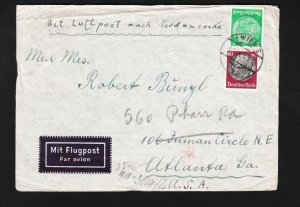 Mit Luftpost nach Nordamerika
Deutsches Reich
Mr & Mrs.
Robert Bunzl
560 Pharr Rd
106 Inman Circle N.E
Mit Flugpost
Par avion
Atlanta Ga.
U.S.A.